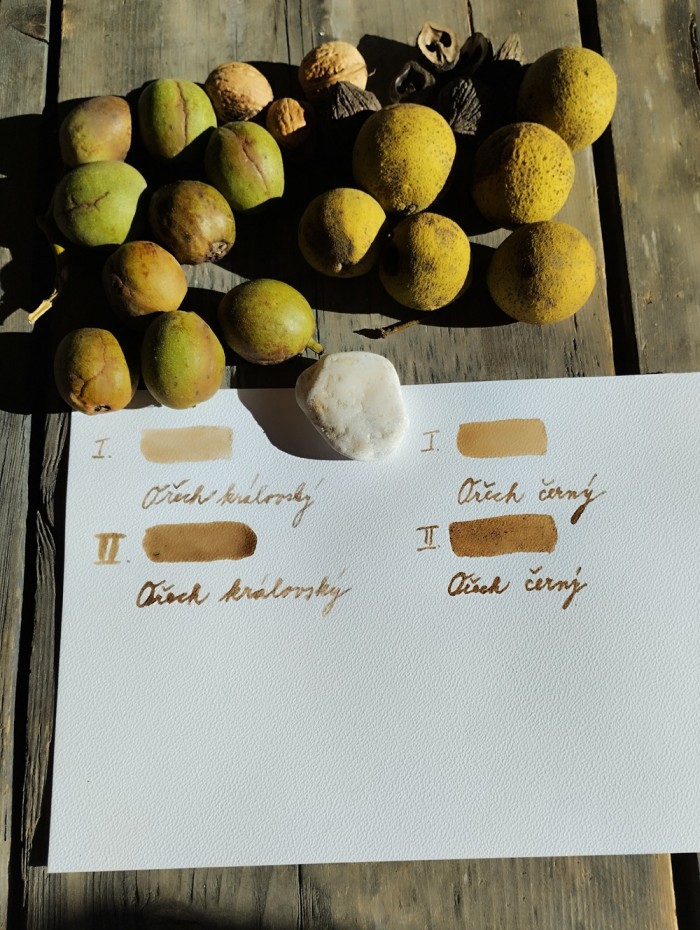 I.
Ořech královský
I.
Ořech černý
II.
Ořech královský
II.
Ořech černý